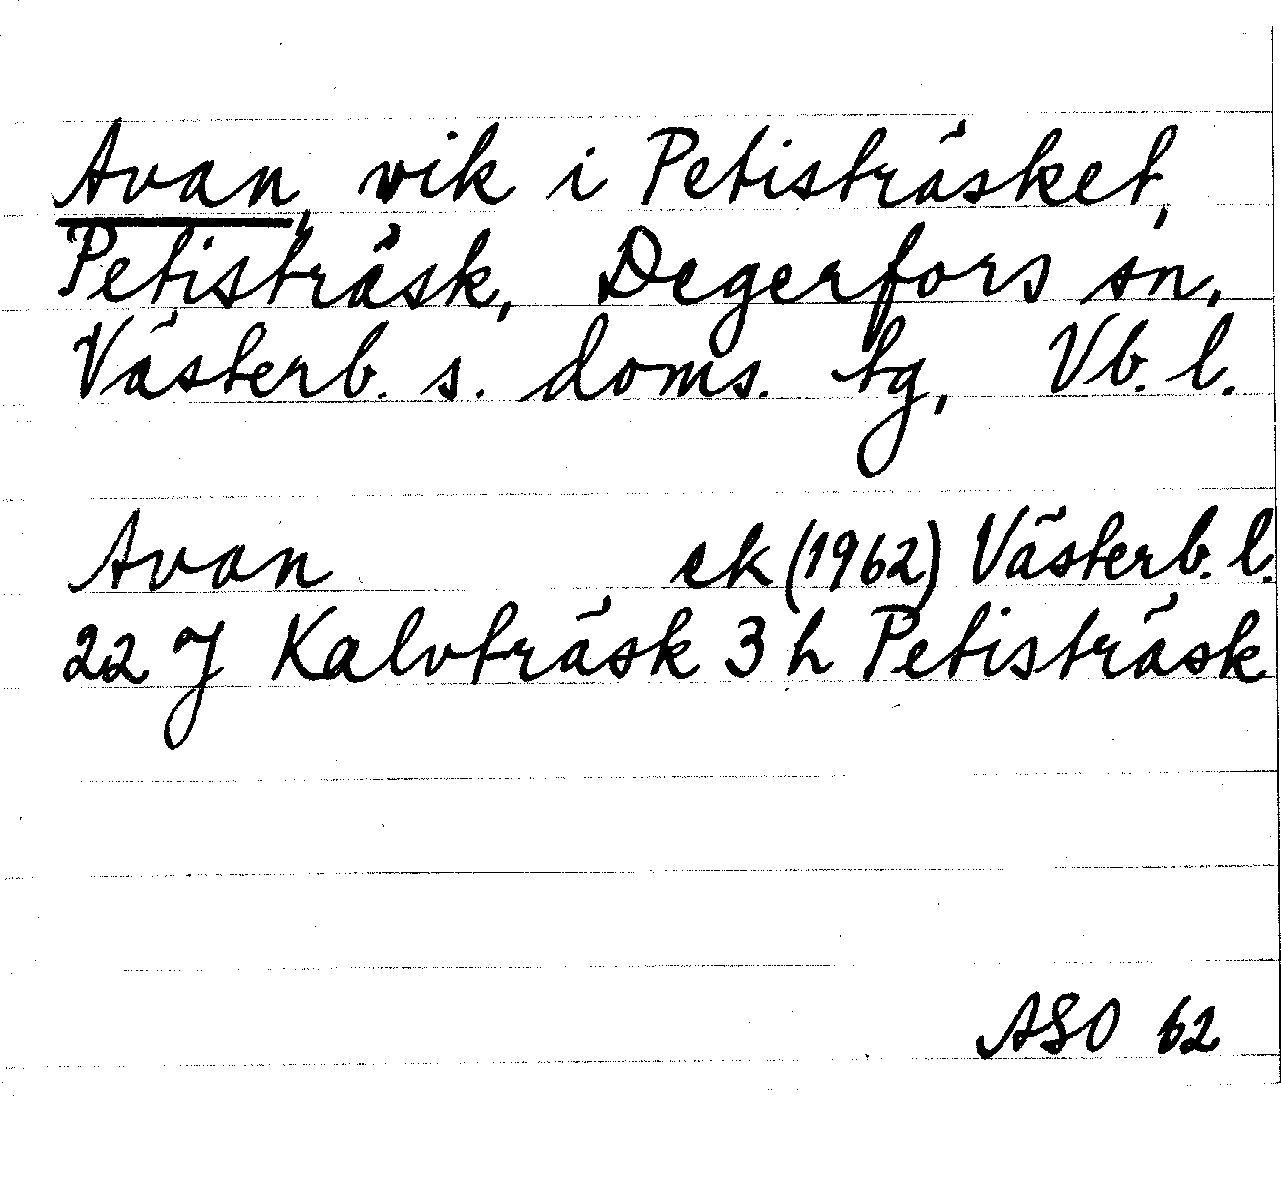 Avan, vik i Petisträsket,
Petisträsk, Degerfors sn,
Västerb. s. doms. tg, Vb. l.
Avan ek (1962) Västerb. l.
22 J Kalvträsk 3 h Petisträsk
ASO 62